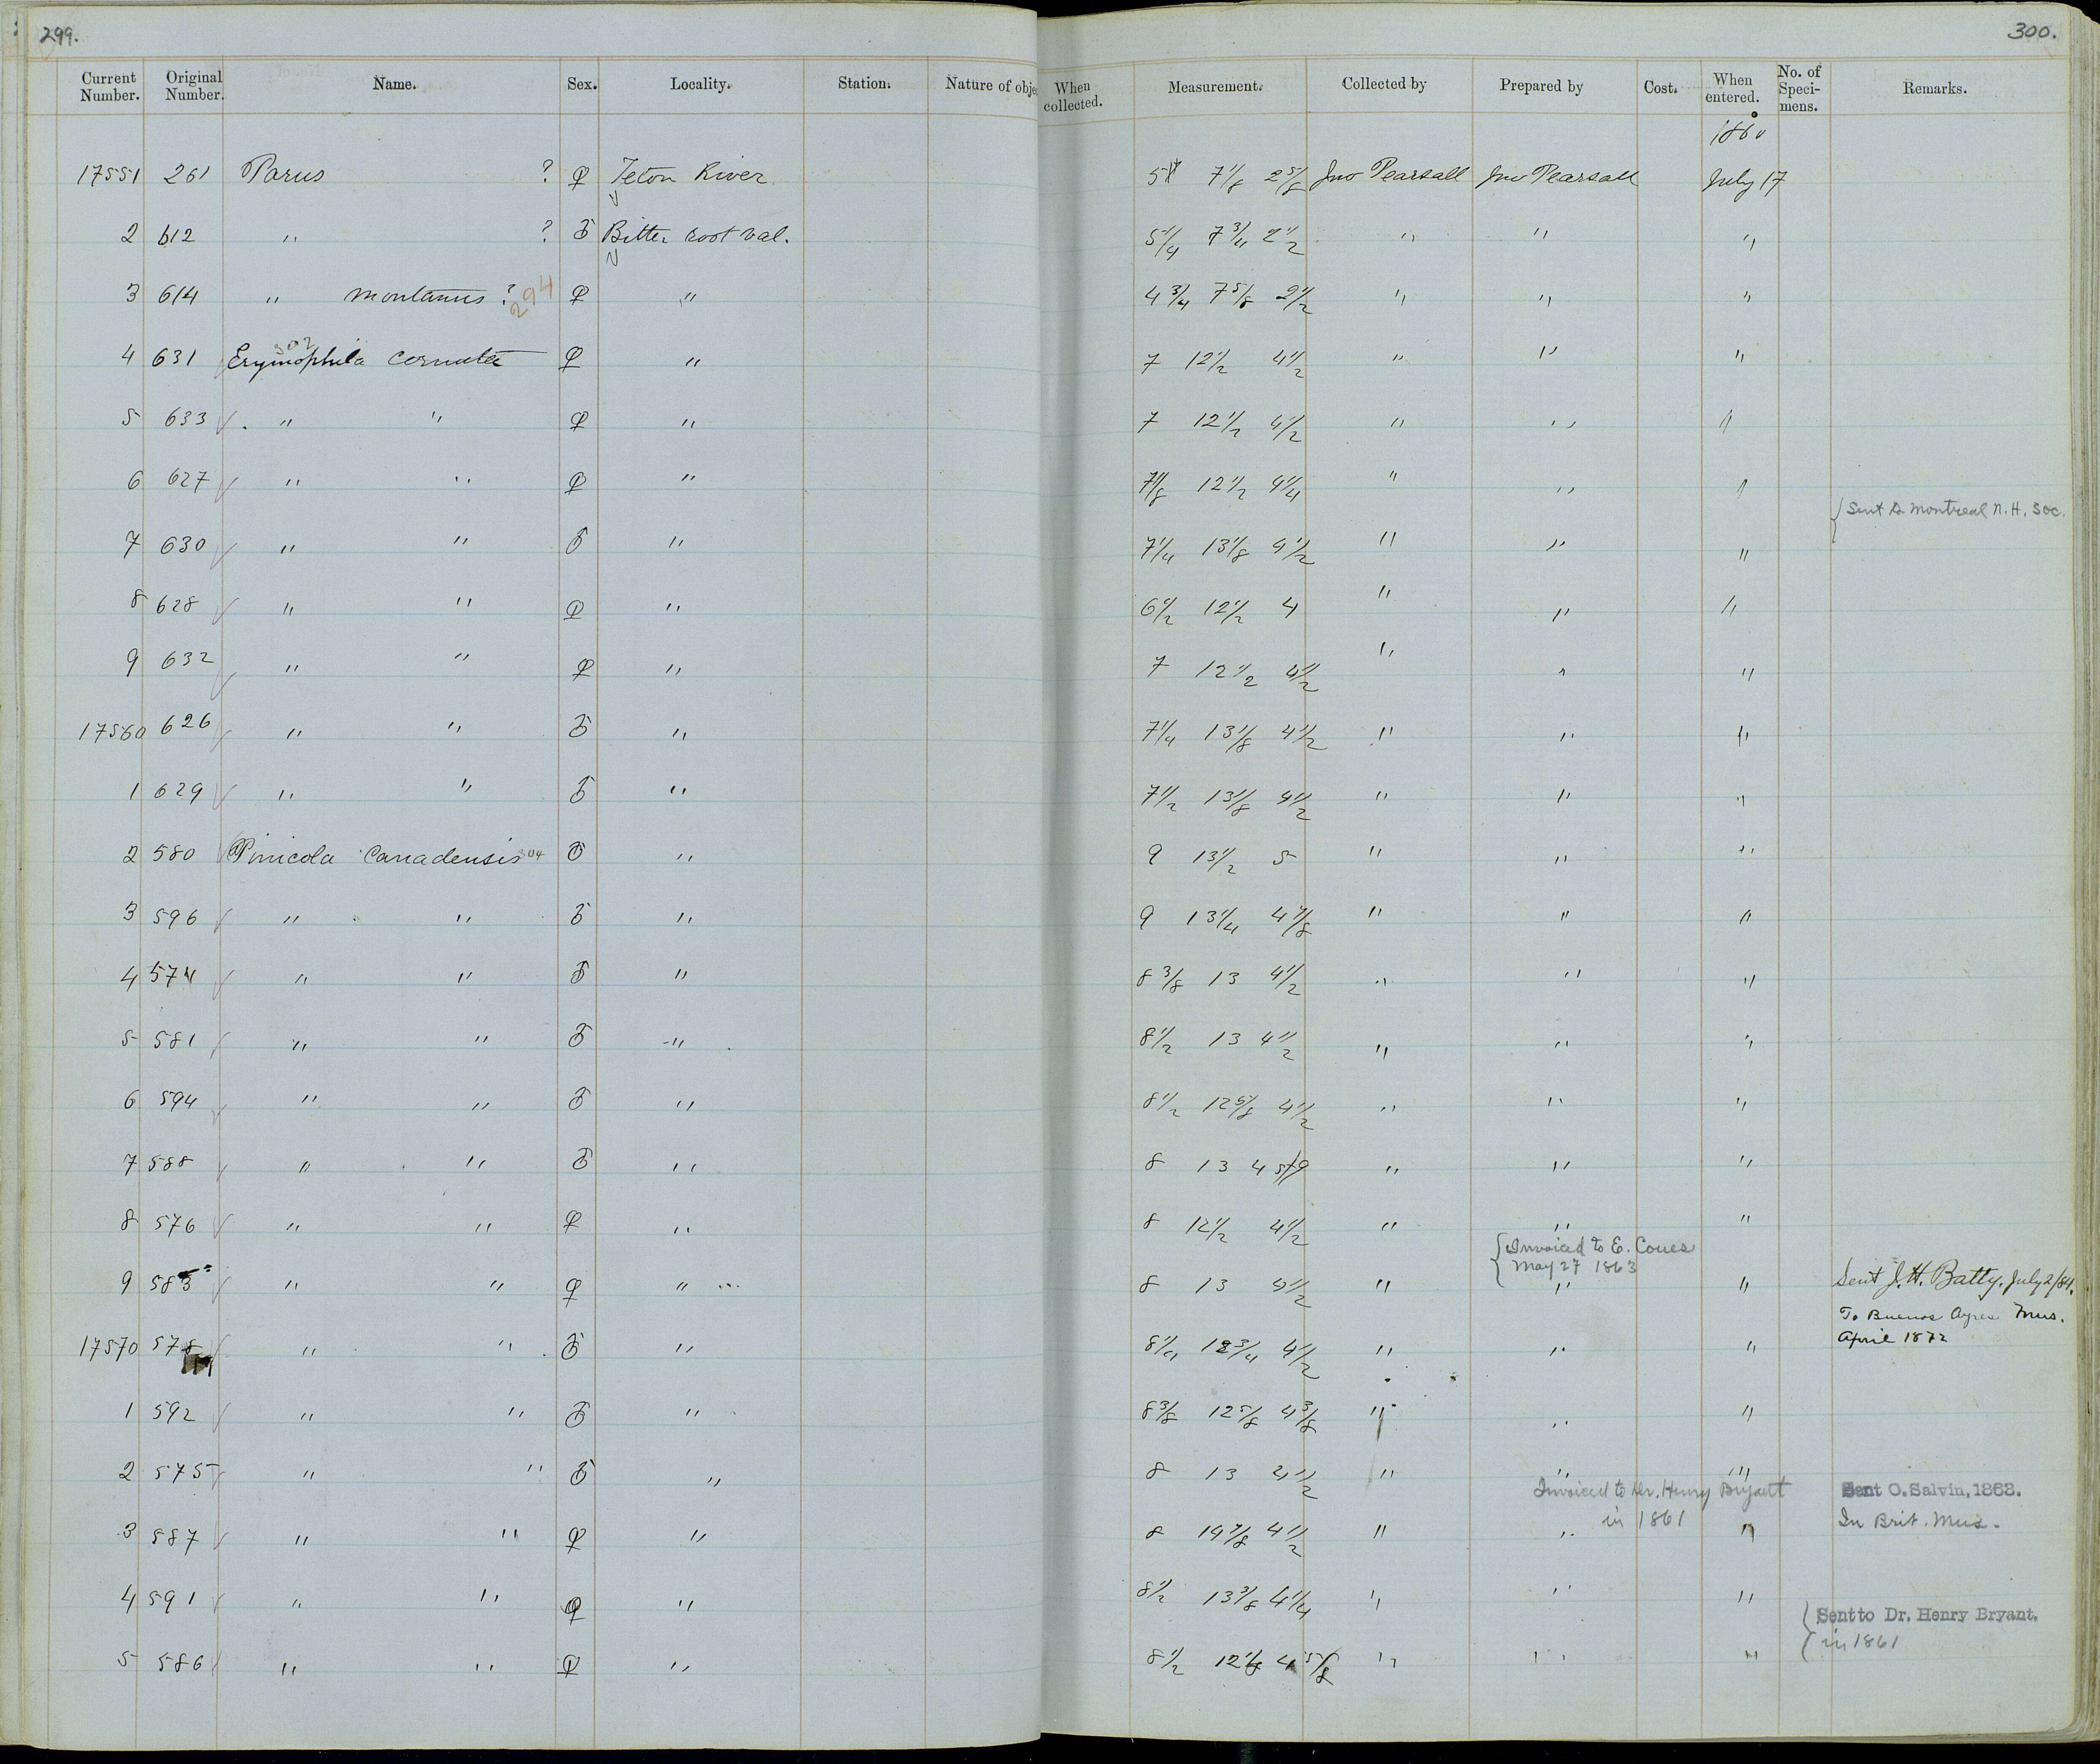 299.
300.
Current Number. Original Number. Name. Sex. Locality. Station. Nature of obje When collected. Measurement. Collected by Prepared by Cost. When entered. No. of Speci- mens. Remarks.
1860
17551 261 Parus ? ♀ Teton River 7 1/8 2 5/8 Jno Pearsall Jno Pearsall July 17
2 612 " ? ♂ Bitter root val. 5 1/4 7 3/4 2 1/2 " " "
3 614 " montanus ? 294 ♀ " 4 3/4 7 5/8 2 1/2 " " "
302
4 631 Erymophila cornuta ♀ " 7 12 1/2 4 1/2 " " "
5 633 " " ♀ " 7 12 1/2 4 1/2 " " "
6 627 " " ♀ " 7 1/8 12 1/2 4 1/4 " " "
{ Sent to Montreal N. H. Soc.
7 630 " " ♂ " 7 1/4 13 1/8 4 1/2 " " "
8 628 " " ♀ " 6 1/2 12 1/2 4 " " "
9 632 " " ♀ " 7 12 1/2 4 1/2 " " "
17560 626 " " ♂ " 7 1/4 13 1/8 4 1/2 " " "
1 629 " " ♂ " 7 1/2 13 1/8 4 1/2 " " "
2 580 Pinicola Canadensis 304 ♂ " 9 13 1/2 5 " " "
3 596 " " ♂ " 9 13 1/4 4 7/8 " " "
4 574 " " ♂ " 8 3/8 13 4 1/2 " " "
5 581 " " ♂ " 8 1/2 13 4 1/2 " " "
6 594 " " ♂ " 8 1/2 12 5/8 4 1/2 " " "
7 588 " " ♂ " 8 13 4 " " "
8 576 " " ♀ " 8 12 1/2 4 1/2 " " "
{ Invoiced to E. Coues
May 27 1863
9 583 " " ♀ " 8 13 4 1/2 " " " Sent J. H. Batty. July 2/84.
To Buenos Ayres Mus.
April 1872
17570 578 " " ♂ " 8 1/4 12 3/4 4 1/2 " " "
1 592 " " ♂ " 8 3/8 12 5/8 4 3/8 " " "
2 575 " " ♂ " 8 13 4 1/2 " " "
Invoiced to Dr. Henry Bryant
in 1861
Sent O. Salvin, 1868.
In Brit. Mus.
3 587 " " ♀ " 8 14 7/8 4 1/2 " " "
4 591 " " ♀ " 8 1/2 13 3/8 4 1/4 " " "
{ Sent to Dr. Henry Bryant.
in 1861
5 586 " " ♀ " 8 1/2 12 4 5/8 " " "